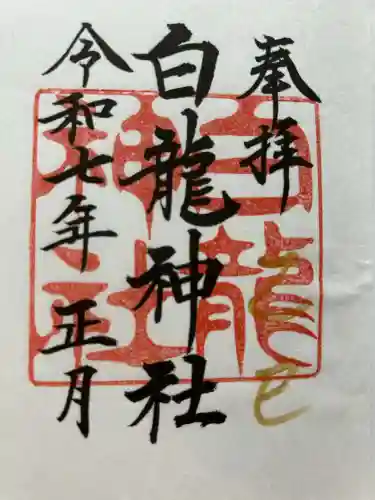 奉拝
白龍神社
令和七年 正月
白龍
神社